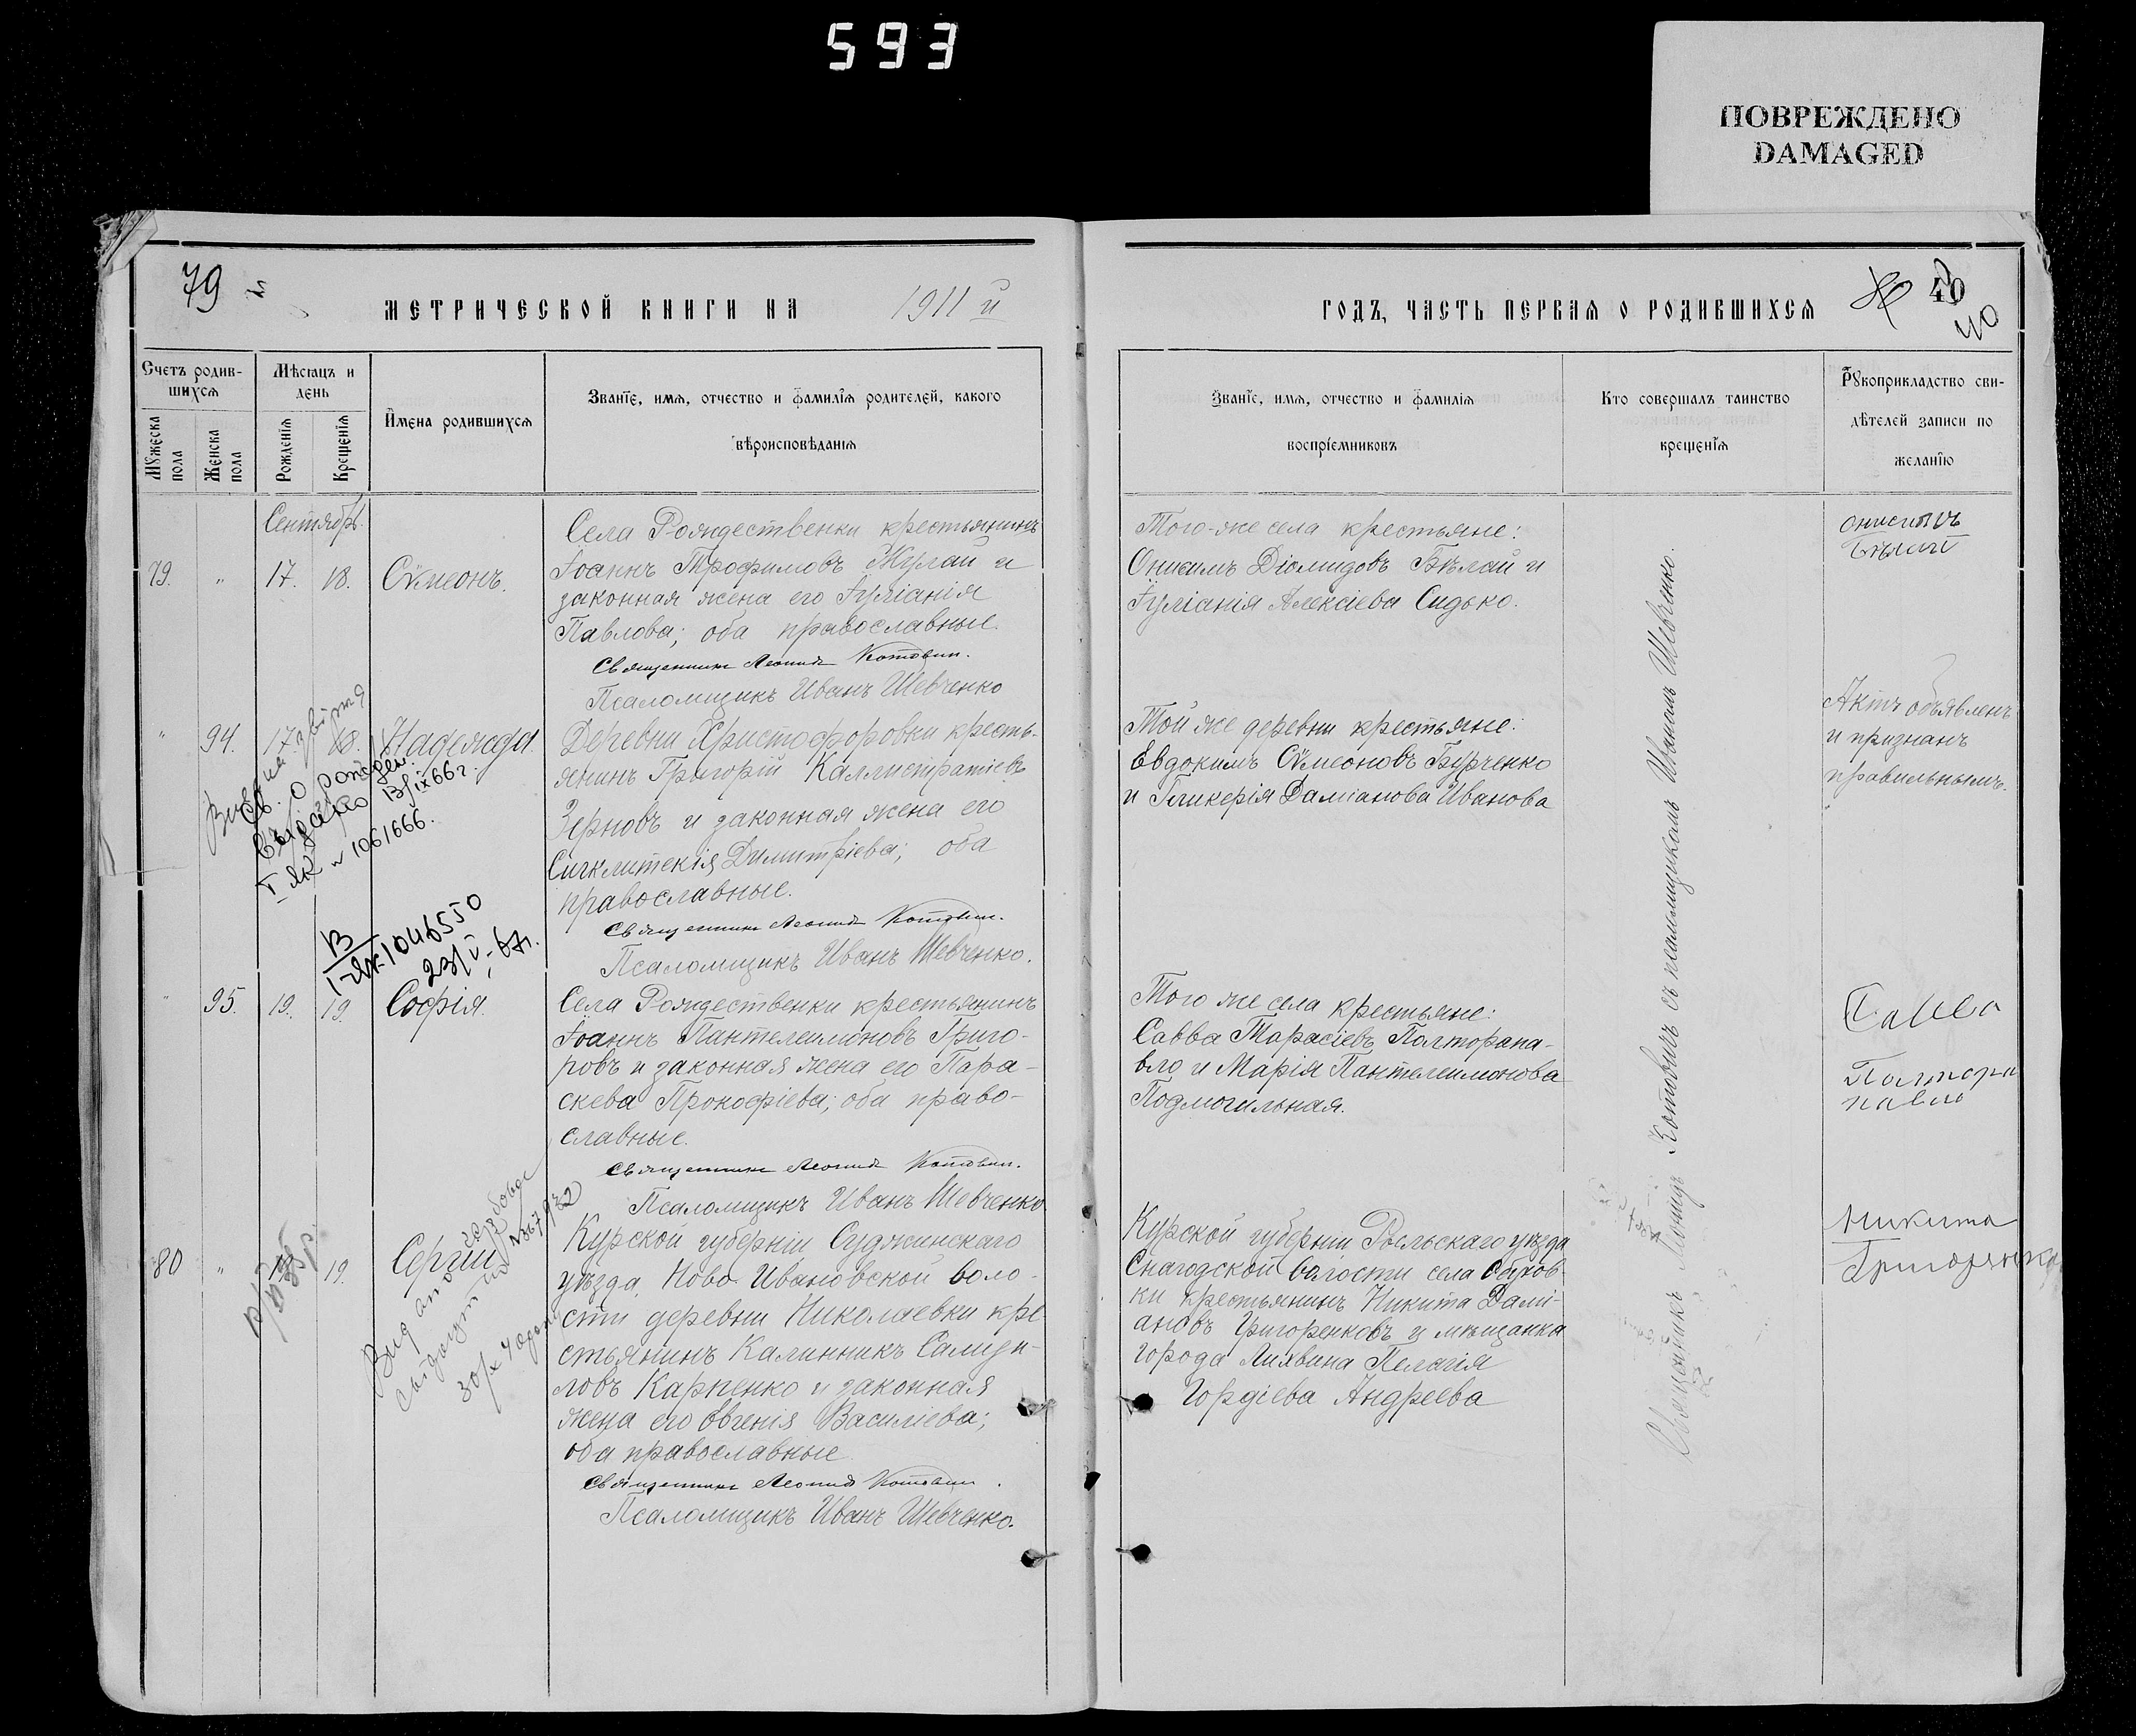 593
ПОВРЕЖДЕНО
DAMAGED
79
МЕТРИЧЕСКОЙ КНИГИ НА 1911 й
ГОДЪ, ЧАСТЬ ПЕРВАЯ О РОДИВШИХСЯ
40
40
Счетъ родив-
шихся
Мѣсяцъ и
день
Мужеска
пола
Женска
пола
Рожденія
Крещенія
Имена родившихся
Званіе, имя, отчество и фамилія родителей, какого
вѣроисповѣданія
Званіе, имя, отчество и фамилія
воспріемниковъ
Кто совершалъ таинство
крещенія
Рукоприкладство сви-
дѣтелей записи по
желанію
Сентябрь.
79. " 17. 18. Сѵмеонъ.
Села Рождественки крестьянинъ
Іоаннъ Трофимовъ Жулай и
законная жена его Іуліанія
Павлова; оба православные.
Священникъ Леонидъ Котовичъ.
Псаломщикъ Иванъ Шевченко
Того-же села крестьяне:
Онисимъ Діомидовъ Бѣлай и
Іуліанія Алексіева Сидько.
Онисимъ
Бѣлай
" 94. 17. 18. Надежда.
Св. о рожден.
выдано 13/IX 66г.
I ЯК № 1061666.
Деревни Христофоровки кресть-
янинъ Григорій Каллистратіевъ
Зерновъ и законная жена его
Сигклитекія Димитріева; оба
православные.
Священникъ Леонидъ Котовичъ.
Псаломщикъ Иванъ Шевченко.
Той же деревни крестьяне:
Евдокимъ Сѵмеоновъ Бурченко
и Гликерія Даміанова Иванова
Актъ объявленъ
и признанъ
правильнымъ.
1046550
23/V-67г.
" 95. 19. 19. Софія.
Села Рождественки крестьянинъ
Іоаннъ Пантелеимоновъ Григо-
ровъ и законная жена его Пара-
скева Прокофіева; оба право-
славные.
Священникъ Леонидъ Котовичъ.
Псаломщикъ Иванъ Шевченко
Того же села крестьяне:
Савва Тарасіевъ Полторапа-
вло и Марія Пантелеимонова
Подмогильная.
Савва
Полтора
павло
80 " 19. Сергій
Курской губерніи Суджинскаго
уѣзда, Ново-Ивановской воло-
сти деревни Николаевки кре-
стьянинъ Калинникъ Самуи-
ловъ Карпенко и законная
жена его Евгенія Василіева;
оба православные
Священникъ Леонидъ Котовичъ.
Псаломщикъ Иванъ Шевченко.
Курской губерніи Рыльскаго уѣзда
Снагодской волости села
ки крестьянинъ Никита Дамі-
ановъ Григоренковъ и мѣщанка
города Лихвина Пелагія
Гордіева Андреева
Никита
Григоренко
Священникъ Леонидъ Котовичъ съ псаломщикомъ Иваномъ Шевченко.